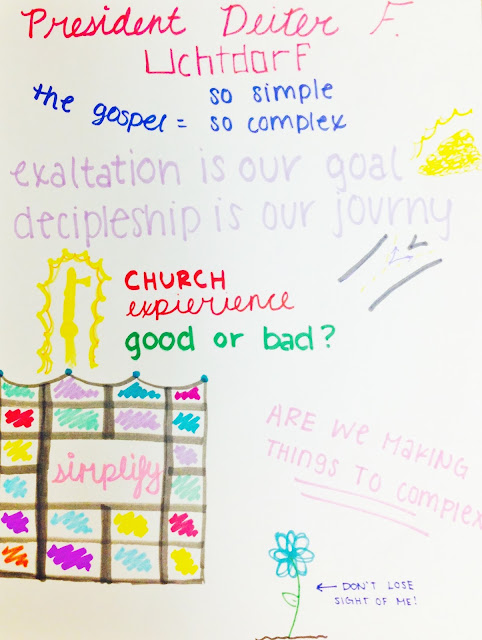 President Deiter F.
Uchtdorf
the gospel = so simple
so complex
exaltation is our goal
decipleship is our journy
CHURCH
expierience
good or bad?
simplify
ARE We MAKING
THINGS TO COMPLEX
DON'T LOSE
SIGHT OF ME!